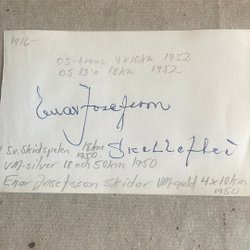 1916-
OS-brons 4x10km 1952
OS 13:e 18km 1952
Enar Josefsson
Skellefteå
1 Sv. Skidspelen 18km 1950
VM-silver 18 och 50km 1950
Enar Josefsson Skidor VM-guld 4x10km
1950